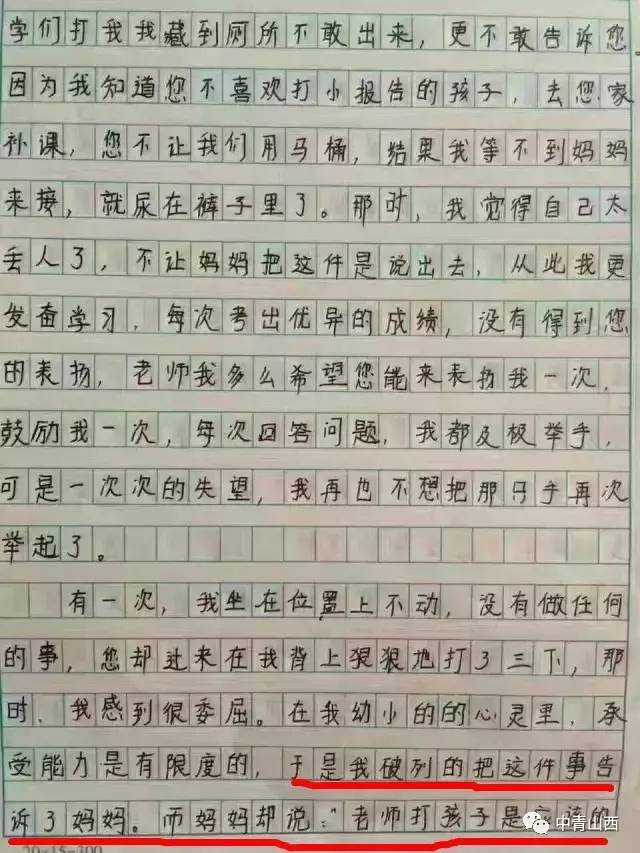 学们打我我藏到厕所不敢出来，更不敢告诉您
因为我知道您不喜欢打小报告的孩子，去您家
补课，您不让我们用马桶，结果我等不到妈妈
来接，就尿在裤子里了。那时，我觉得自己太
丢人了，不让妈妈把这件是说出去，从此我更
发奋学习，每次考出优异的成绩，没有得到您
的表扬，老师我多么希望您能来表扬我一次，
鼓励我一次，每次回答问题，我都及极举手，
可是一次次的失望，我再也不想把那只手再次
举起了。
有一次，我坐在位置上不动，没有做任何
的事，您却过来在我背上狠狠地打了三下，那
时，我感到很委屈。在我幼小的的心灵里，承
受能力是有限度的，于是我破列的把这件事告
诉了妈妈。而妈妈却说："老师打孩子是应该的
中青山西
20×15=300